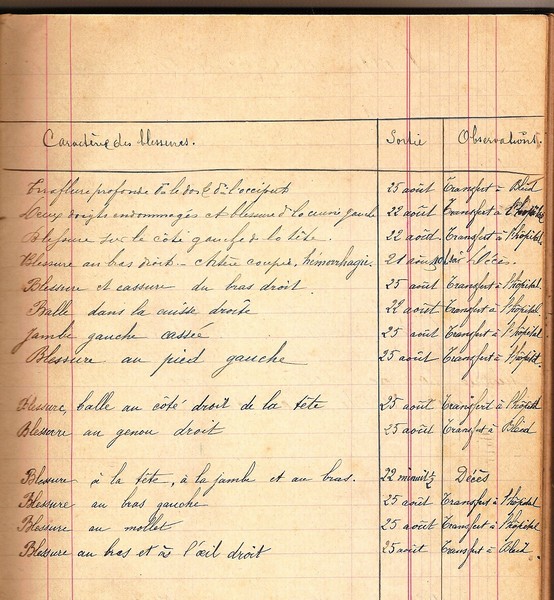 Caractère des blessures. Sortie Observations.
Eraflure profonde à le dos & à l'occiput 25 août Transfert à Bléid
Deux doigts endommagés et blessure à la cuisse gauche 22 août Transfert à l'hôpital
Blessure sur le côté gauche de la tête. 22 août Transfert à l'hôpital.
Blessure au bras droit - artère coupée, hémorrhagie. 21 août soir Décès.
Blessure et cassure du bras droit. 25 août Transfert à l'hôpital.
Balle dans la cuisse droite 22 août Transfert à l'hôpital
Jambe gauche cassée 25 août Transfert à l'hôpital.
Blessure au pied gauche 25 août Transfert à l'hôpital.
Blessure, balle au côté droit de la tête 25 août Transfert à l'hôpital
Blessure au genou droit 25 août Transfert à Bléid
Blessure à la tête, à la jambe et au bras. 22 minuit ½ Décès
Blessure au bras gauche 25 août Transfert à l'hôpital
Blessure au mollet 25 août Transfert à l'hôpital
Blessure au bras et à l'œil droit 25 août Transfert à Bleid.